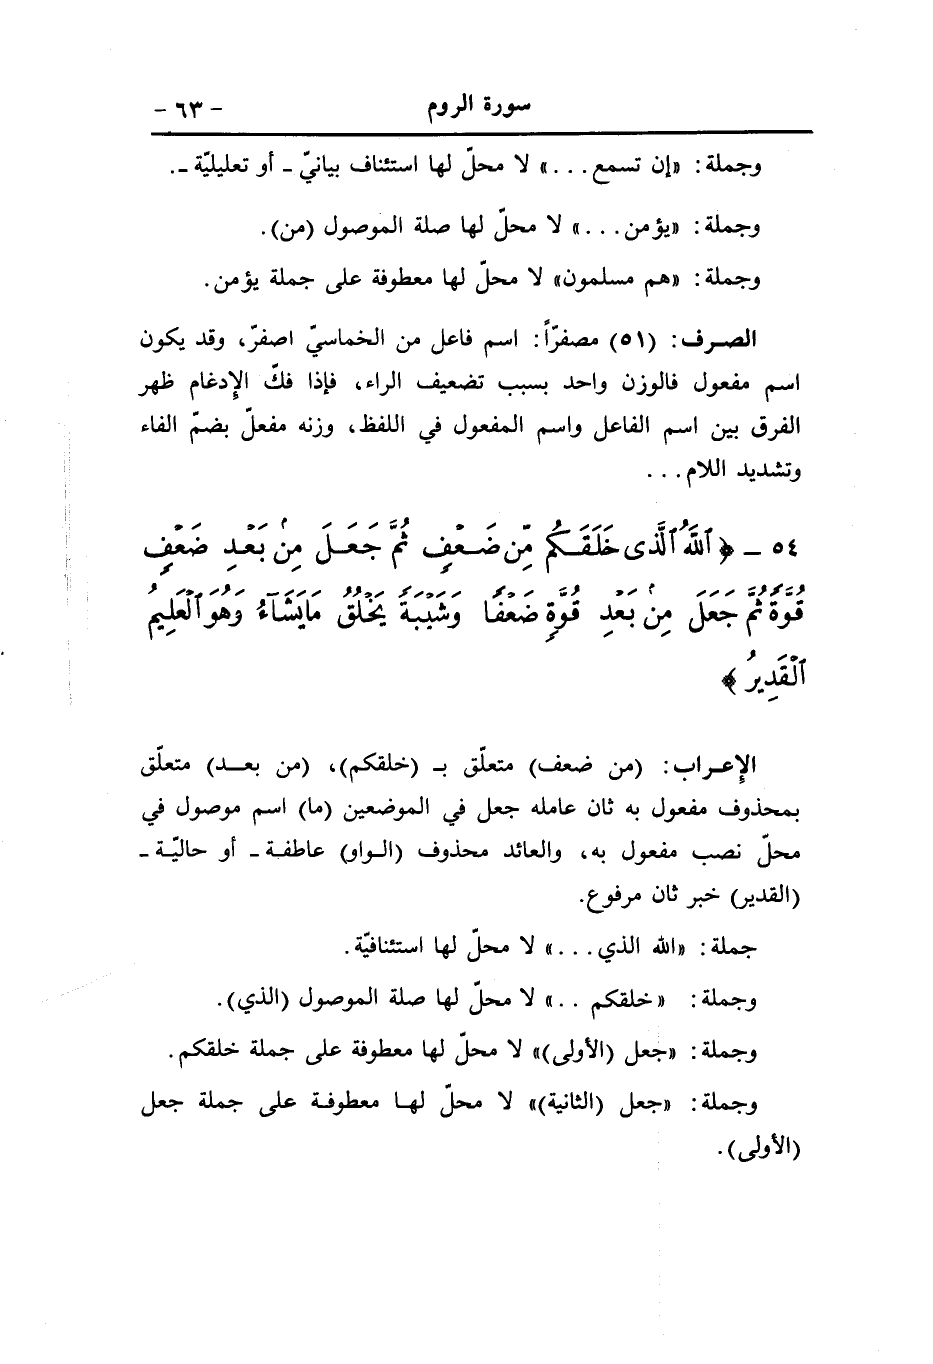 سورة الروم - ٦٣ -
وجملة: «إن تسمع...» لا محلّ لها استئناف بيانيّ - أو تعليليّة -.
وجملة: «يؤمن...» لا محلّ لها صلة الموصول (من).
وجملة: «هم مسلمون» لا محلّ لها معطوفة على جملة يؤمن.
الصرف: (٥١) مصفرّاً: اسم فاعل من الخماسيّ اصفرّ، وقد يكون
اسم مفعول فالوزن واحد بسبب تضعيف الراء، فإذا فكّ الإدغام ظهر
الفرق بين اسم الفاعل واسم المفعول في اللفظ، وزنه مفعلّ بضمّ الفاء
وتشديد اللام...
٥٤ - ﴿ ٱللَّهُ ٱلَّذِى خَلَقَكُم مِّن ضَعْفٍ ثُمَّ جَعَلَ مِنۢ بَعْدِ ضَعْفٍ
قُوَّةً ثُمَّ جَعَلَ مِنۢ بَعْدِ قُوَّةٍ ضَعْفًا وَشَيْبَةً يَخْلُقُ مَا يَشَآءُ وَهُوَ ٱلْعَلِيمُ
ٱلْقَدِيرُ ﴾
الإعراب: (من ضعف) متعلّق بـ (خلقكم)، (من بعد) متعلّق
بمحذوف مفعول به ثان عامله جعل في الموضعين (ما) اسم موصول في
محلّ نصب مفعول به، والعائد محذوف (الواو) عاطفة - أو حاليّة -
(القدير) خبر ثان مرفوع.
جملة: «الله الذي...» لا محلّ لها استئنافيّة.
وجملة: «خلقكم ..» لا محلّ لها صلة الموصول (الذي).
وجملة: «جعل (الأولى)» لا محلّ لها معطوفة على جملة خلقكم.
وجملة: «جعل (الثانية)» لا محلّ لها معطوفة على جملة جعل
(الأولى).